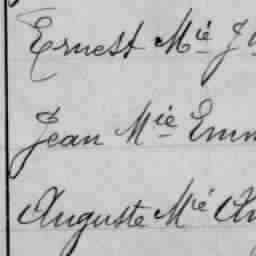 Ernest Mie
Jean Mie
Auguste Mie